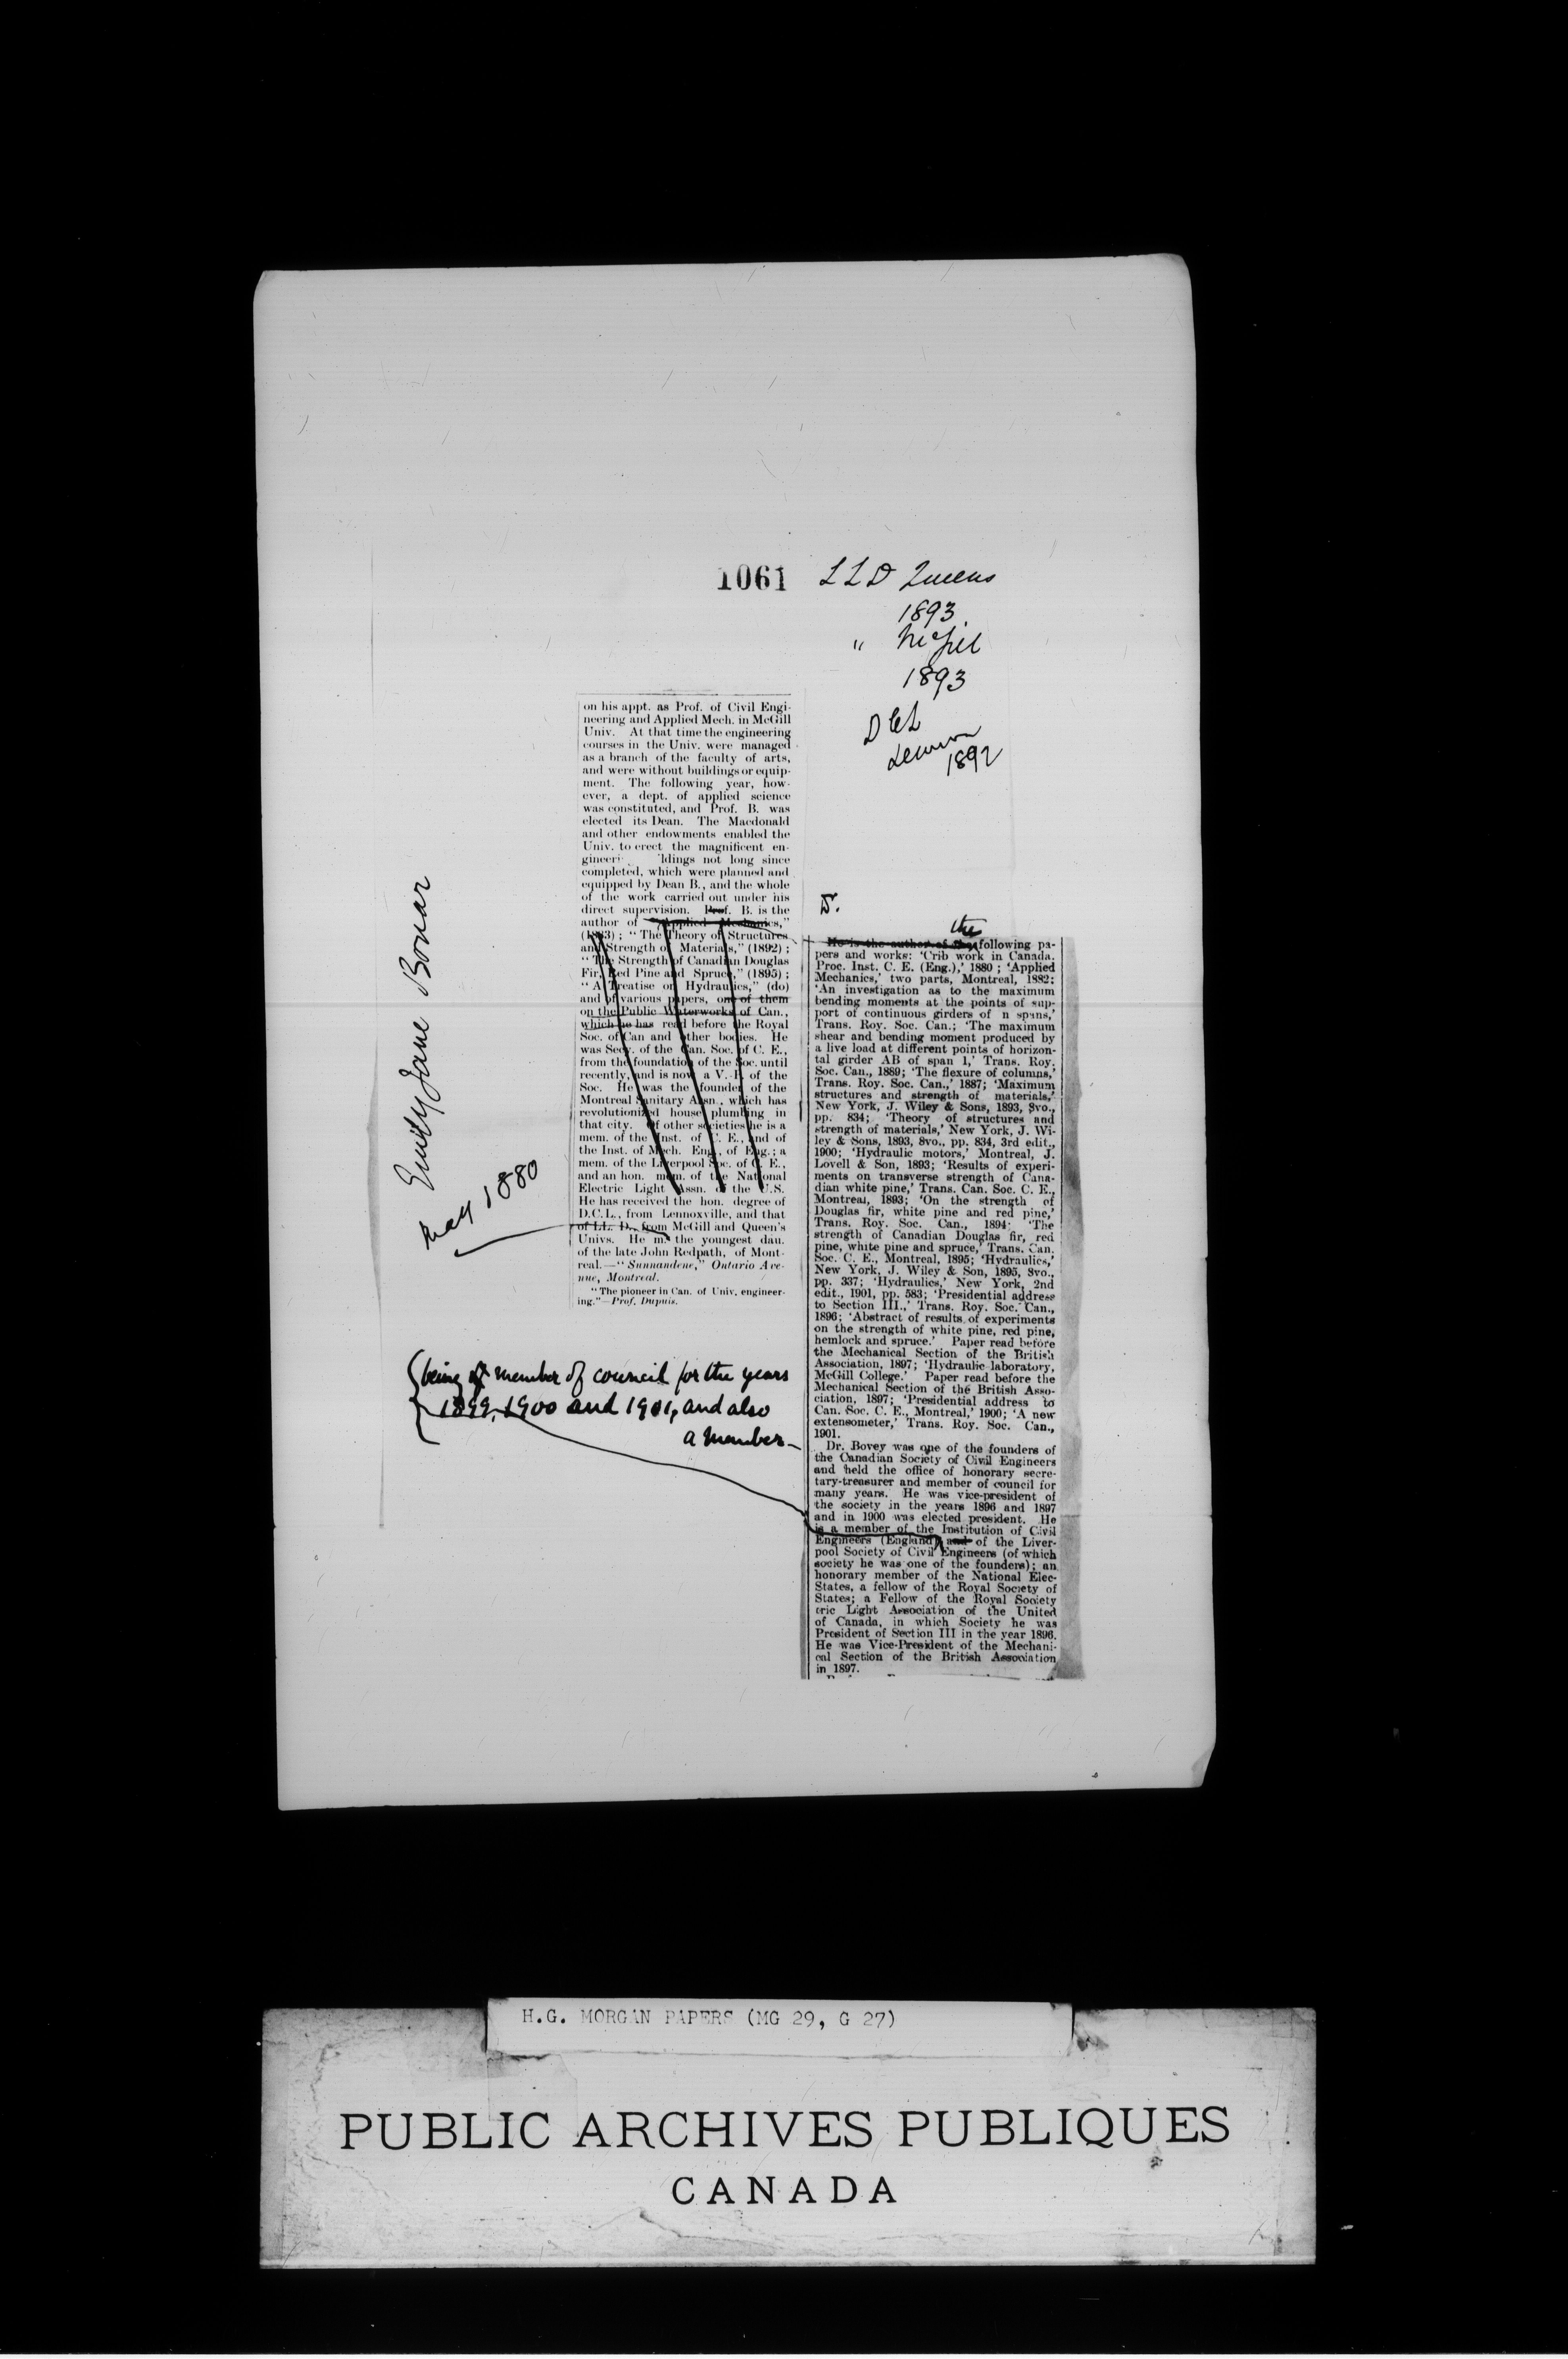 1061
LLD Queens
1893
" McGill
1893
DCL
Lennox
1892
Emily Jane Bonar
May 1880
on his appt. as Prof. of Civil Engi-
neering and Applied Mech. in McGill
Univ. At that time the engineering
courses in the Univ. were managed
as a branch of the faculty of arts,
and were without buildings or equip-
ment. The following year, how-
ever, a dept. of applied science
was constituted, and Prof. B. was
elected its Dean. The Macdonald
and other endowments enabled the
Univ. to erect the magnificent en-
gineeri ldings not long since
completed, which were planned and
equipped by Dean B., and the whole
of the work carried out under his
direct supervision. Prof. B. is the
author of "Applied Mechanics,"
(1883); "The Theory of Structures
and Strength of Materials," (1892);
"The Strength of Canadian Douglas
Fir, Red Pine and Spruce," (1895);
"A Treatise on Hydraulics," (do)
and of various papers, one of them
on the Public Waterworks of Can.,
which he has read before the Royal
Soc. of Can and other bodies. He
was Secy. of the Can. Soc. of C. E.,
from the foundation of the Soc. until
recently, and is now a V.-P. of the
Soc. He was the founder of the
Montreal Sanitary Assn., which has
revolutionized house plumbing in
that city. Of other societies he is a
mem. of the Inst. of C. E., and of
the Inst. of Mech. Eng., of Eng.; a
mem. of the Liverpool Soc. of C. E.,
and an hon. mem. of the National
Electric Light Assn. of the U.S.
He has received the hon. degree of
D.C.L., from Lennoxville, and that
of LL. D., from McGill and Queen's
Univs. He m. the youngest dau.
of the late John Redpath, of Mont-
real.—"Sunnandene," Ontario Ave-
nue, Montreal.
"The pioneer in Can. of Univ. engineer-
ing."—Prof. Dupuis.
{being a member of council for the years
1899, 1900 and 1901, and also
a member
B.
the
He is the author of the following pa-
pers and works: 'Crib work in Canada.
Proc. Inst. C. E. (Eng.),' 1880; 'Applied
Mechanics,' two parts, Montreal, 1882;
'An investigation as to the maximum
bending moments at the points of sup-
port of continuous girders of n spans,'
Trans. Roy. Soc. Can.; 'The maximum
shear and bending moment produced by
a live load at different points of horizon-
tal girder AB of span 1,' Trans. Roy.
Soc. Can., 1889; 'The flexure of columns,'
Trans. Roy. Soc. Can.,' 1887; 'Maximum
structures and strength of materials,'
New York, J. Wiley & Sons, 1893, 8vo.,
pp. 834; 'Theory of structures and
strength of materials,' New York, J. Wi-
ley & Sons, 1893, 8vo., pp. 834, 3rd edit.,
1900; 'Hydraulic motors,' Montreal, J.
Lovell & Son, 1893; 'Results of experi-
ments on transverse strength of Cana-
dian white pine,' Trans. Can. Soc. C. E.,
Montreal, 1893; 'On the strength of
Douglas fir, white pine and red pine,'
Trans. Roy. Soc. Can., 1894; 'The
strength of Canadian Douglas fir, red
pine, white pine and spruce,' Trans. Can.
Soc. C. E., Montreal, 1895; 'Hydraulics,'
New York, J. Wiley & Son, 1895, 8vo.,
pp. 337; 'Hydraulics,' New York, 2nd
edit., 1901, pp. 583; 'Presidential address
to Section III.,' Trans. Roy. Soc. Can.,
1896; 'Abstract of results of experiments
on the strength of white pine, red pine,
hemlock and spruce.' Paper read before
the Mechanical Section of the British
Association, 1897; 'Hydraulic laboratory,
McGill College.' Paper read before the
Mechanical Section of the British Asso-
ciation, 1897; 'Presidential address to
Can. Soc. C. E., Montreal,' 1900; 'A new
extensometer,' Trans. Roy. Soc. Can.,
1901.
Dr. Bovey was one of the founders of
the Canadian Society of Civil Engineers
and held the office of honorary secre-
tary-treasurer and member of council for
many years. He was vice-president of
the society in the years 1896 and 1897
and in 1900 was elected president. He
is a member of the Institution of Civil
Engineers (England) and of the Liver-
pool Society of Civil Engineers (of which
society he was one of the founders); an
honorary member of the National Elec-
States, a fellow of the Royal Society of
States; a Fellow of the Royal Society
tric Light Association of the United
of Canada, in which Society he was
President of Section III in the year 1896.
He was Vice-President of the Mechani-
cal Section of the British Association
in 1897.
H.G. MORGAN PAPERS (MG 29, G 27)
PUBLIC ARCHIVES PUBLIQUES
CANADA